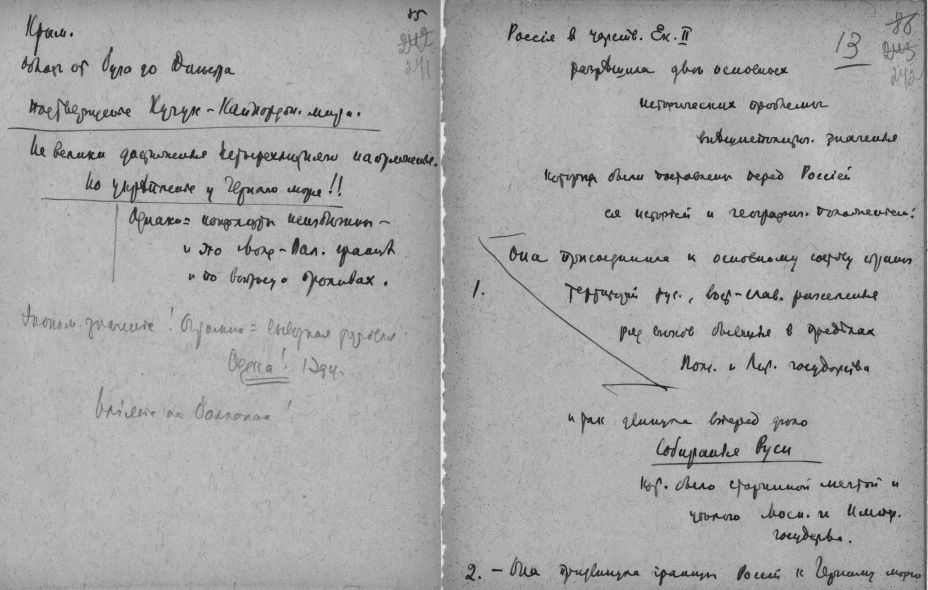 85
242
241
Крым.
область от Буга до Днестра
подтверждение Кучук-Кайнардж. мира.
Не велики достижения четырехлетнего напряжения.
Но укрѣпление у Чернаго моря!!
Однако = конфликты неизбежны –
и это вост-Бал. границѣ
и по вопросу о проливах.
Эконом. значение! Огромно =
Одесса! 1794.
Вліяніе на Балканах!
86
243
242
13
Россія в царств. Ек. II
разрѣшила двѣ основных
исторических проблемы
внѣшнеполитич. значенья
которыя были поставлены перед Россіей
ея исторіей и географич. положением:
1.
Она присоединила к основному составу страны
территорій рус., вост-слав. разселенья
ряд вѣков бывшія в предѣлах
Пол. и Лит. государства
и так двинула вперед дѣло
Собиранья Руси
кот. было старинной мечтой и
Моск. и Импер.
государства.
2. – Она придвинула границы Россіи к Черному морю